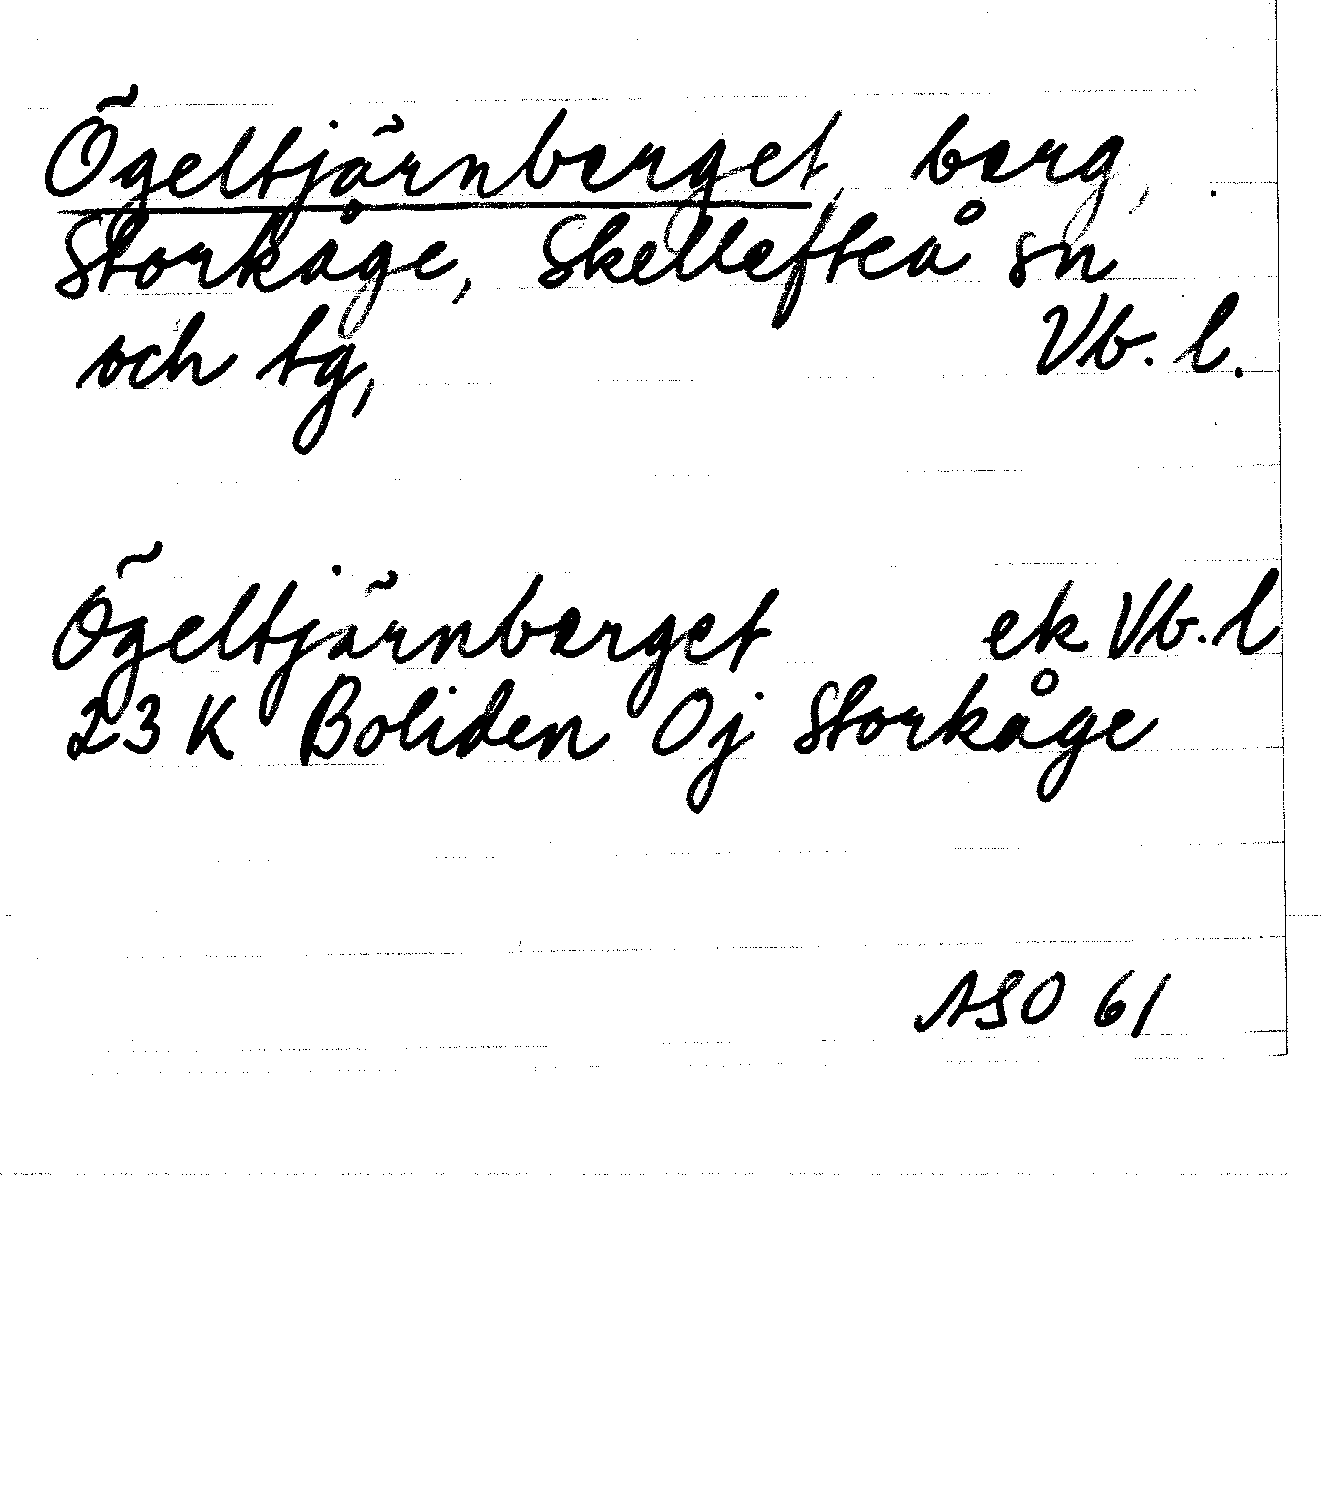 Ögeltjärnberget, berg,
Storkåge, Skellefteå sn
och tg, Vb. l.
Ögeltjärnberget ek Vb. l
23 K Boliden Oj Storkåge
ASO 61